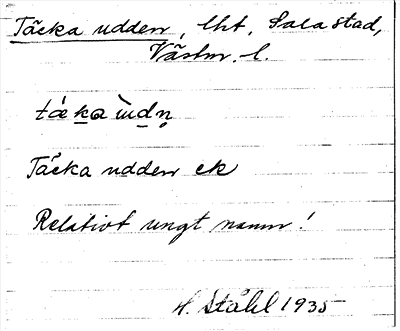 Täcka udden, lht, Sala stad,
Västm. l.
Täcka udden ek
Relativt ungt namn!
H. Ståhl 1935